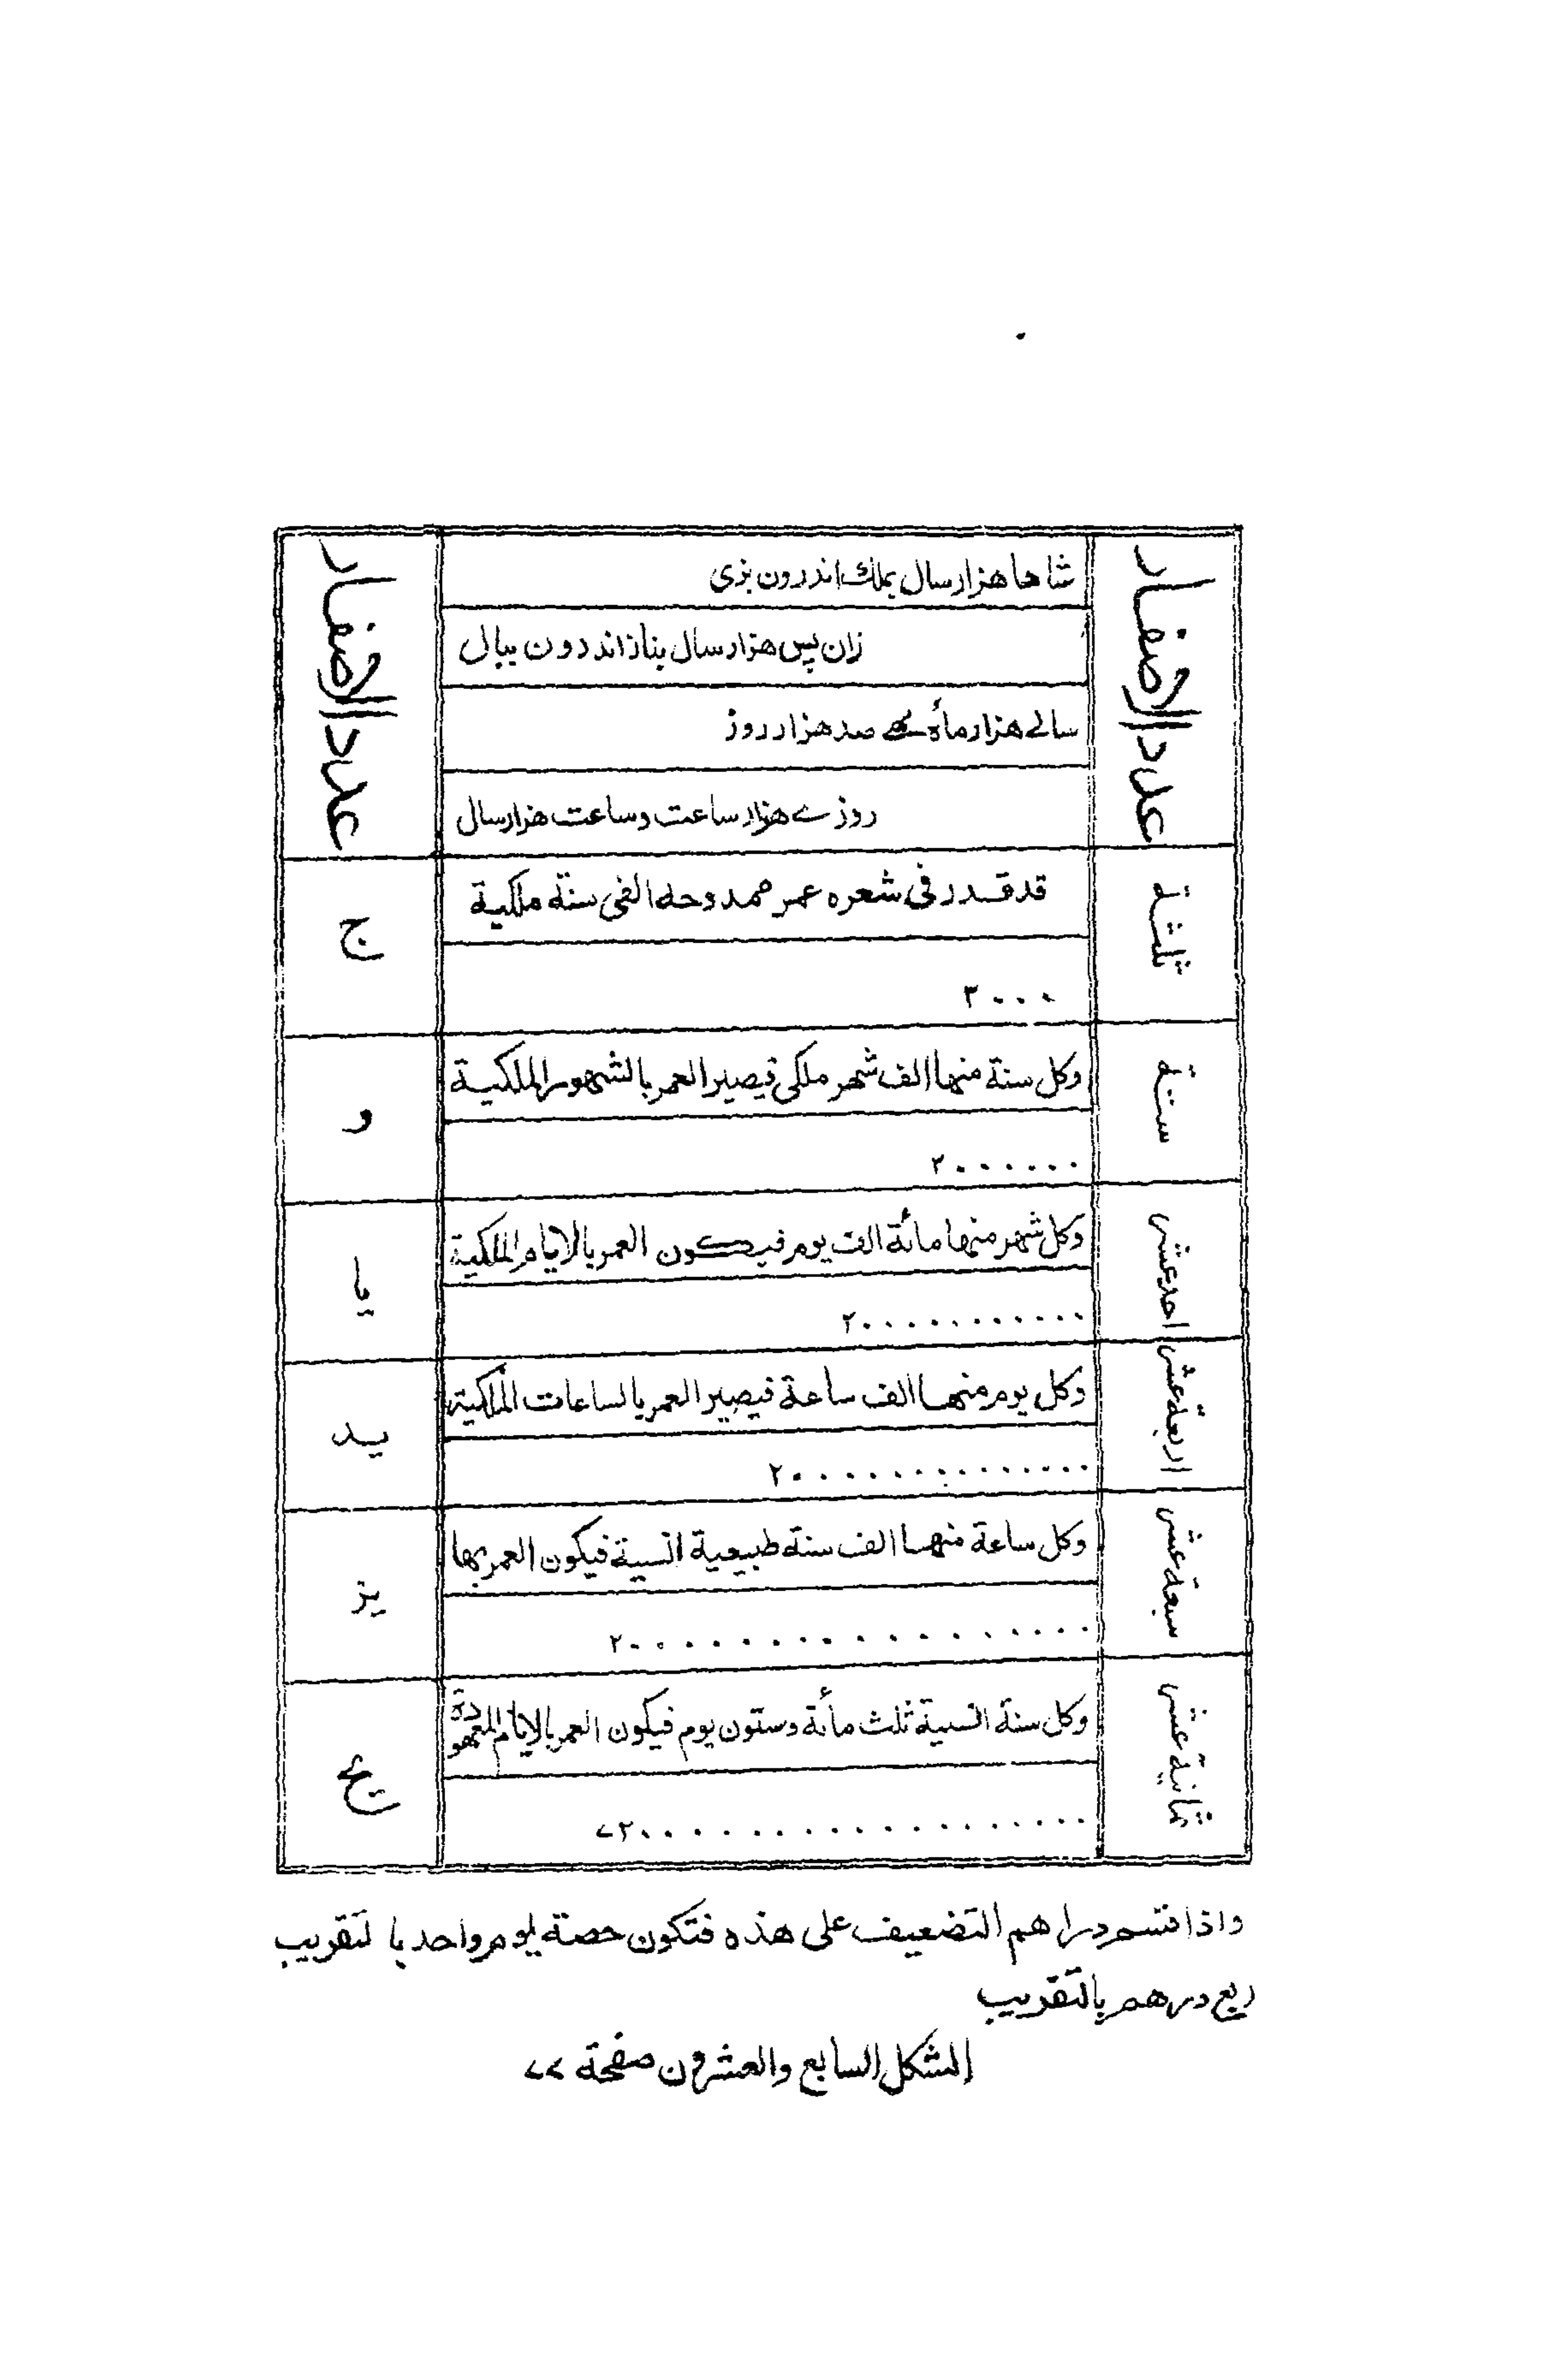 عدد الاصفار
شاها هزار سال بملك اندرون بزی
عدد الاصفار
زان پس هزار سال بناز اندرون ببال
سالے هزار ماٴه مهے صد هزار روز
روزے هزار ساعت وساعت هزار سال
ثلثة
قد قدر فی شعره عمر ممدوحه الفی سنة ملكية
ج
٢٠٠٠
ستة
وكل سنة منها الف شهر ملكی فيصير العمر بالشهور الملكية
و
٢٠٠٠٠٠٠
احد عشر
وكل شهر منها مائة الف يوم فيكون العمر بالايام الملكية
يا
٢٠٠٠٠٠٠٠٠٠٠٠
اربعة عشر
وكل يوم منها الف ساعة فيصير العمر بالساعات الملكية
يد
٢٠٠٠٠٠٠٠٠٠٠٠٠٠٠
سبعة عشر
وكل ساعة منها الف سنة طبيعية انسية فيكون العمر بها
يز
٢٠٠٠٠٠٠٠٠٠٠٠٠٠٠٠٠٠
ثمانية عشر
وكل سنة انسية ثلث مأئة وستون يوم فيكون العمر بالايام المعهودة
يح
٧٢٠٠٠٠٠٠٠٠٠٠٠٠٠٠٠٠٠٠
واذا قسم دراهم التضعيف على هذه فتكون حصة ليوم واحد بالتقريب
ربع درهم بالتقريب
الشكل السابع والعشرون صفحة ٧٧